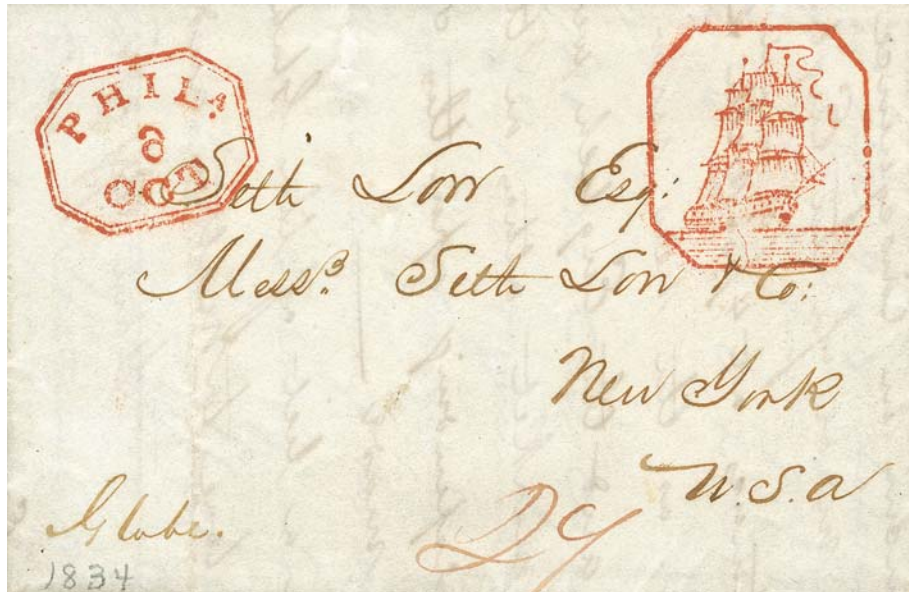 PHILA.
6
OCT
Seth Low Esq:
Messrs. Seth Low & Co:
New York
U.S.a
Globe.
1834